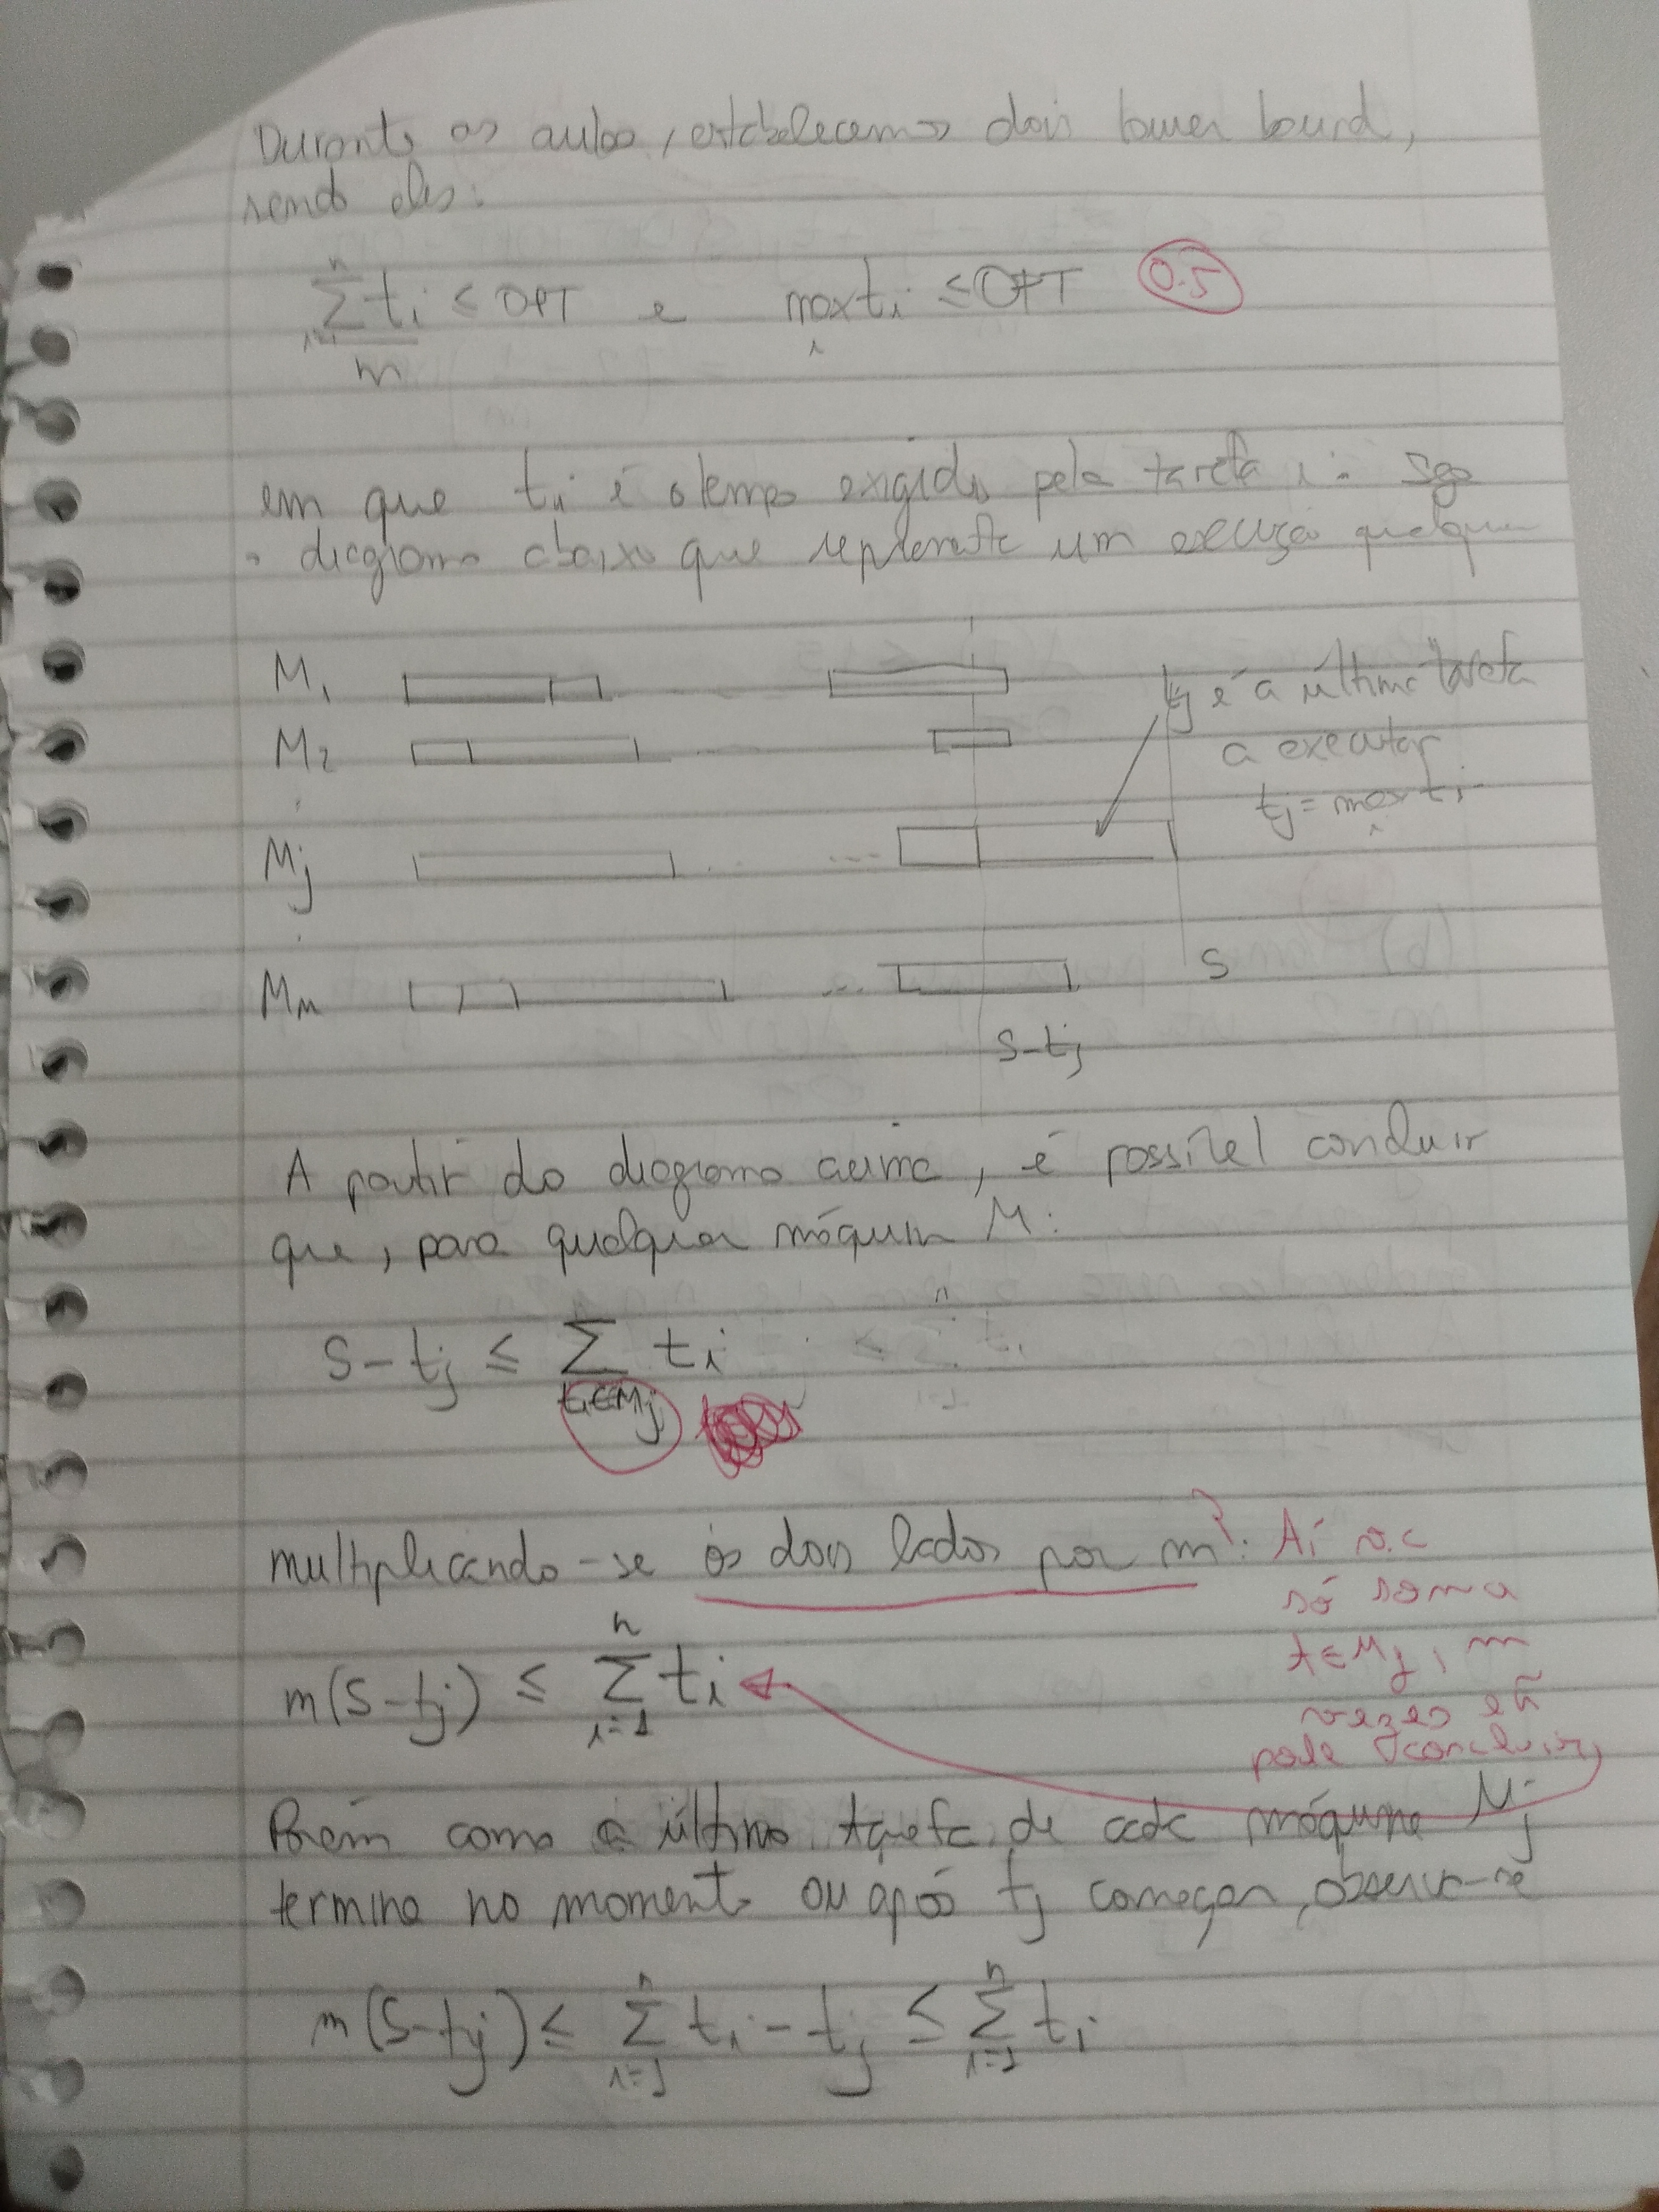 Durante as aulas, estabelecemos dois lower bound,
sendo eles:
n
∑ ti ≤ OPT e max ti ≤ OPT 0.5
i=1 i
m
em que ti é o tempo exigido pela tarefa i. Seja
o diagrama abaixo que representa um execução qualquer
M1
tj é a última tarefa
M2 ... a executar
tj = max ti
i
Mj ... ...
Mm ... S
S-tj
A partir do diagrama acima, é possível concluir
que, para qualquer máquina M:
S - tj ≤ ∑ ti
ti∈Mj
multiplicando-se os dois lados por m?: Aí vc
só soma
t∈Mj, m
vezes e ñ
pode concluir
n
m(S-tj) ≤ ∑ ti
i=1
Porém como a última tarefa de cada máquina Mj
termina no momento ou após tj começar, observa-se
m(S-tj) ≤ n∑i=1 ti - tj ≤ n∑i=1 ti